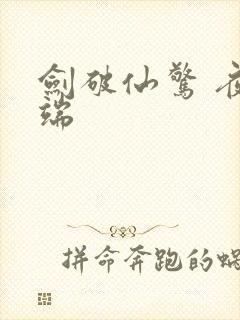 劍破仙驚 夜
端
拼命奔跑的蝸